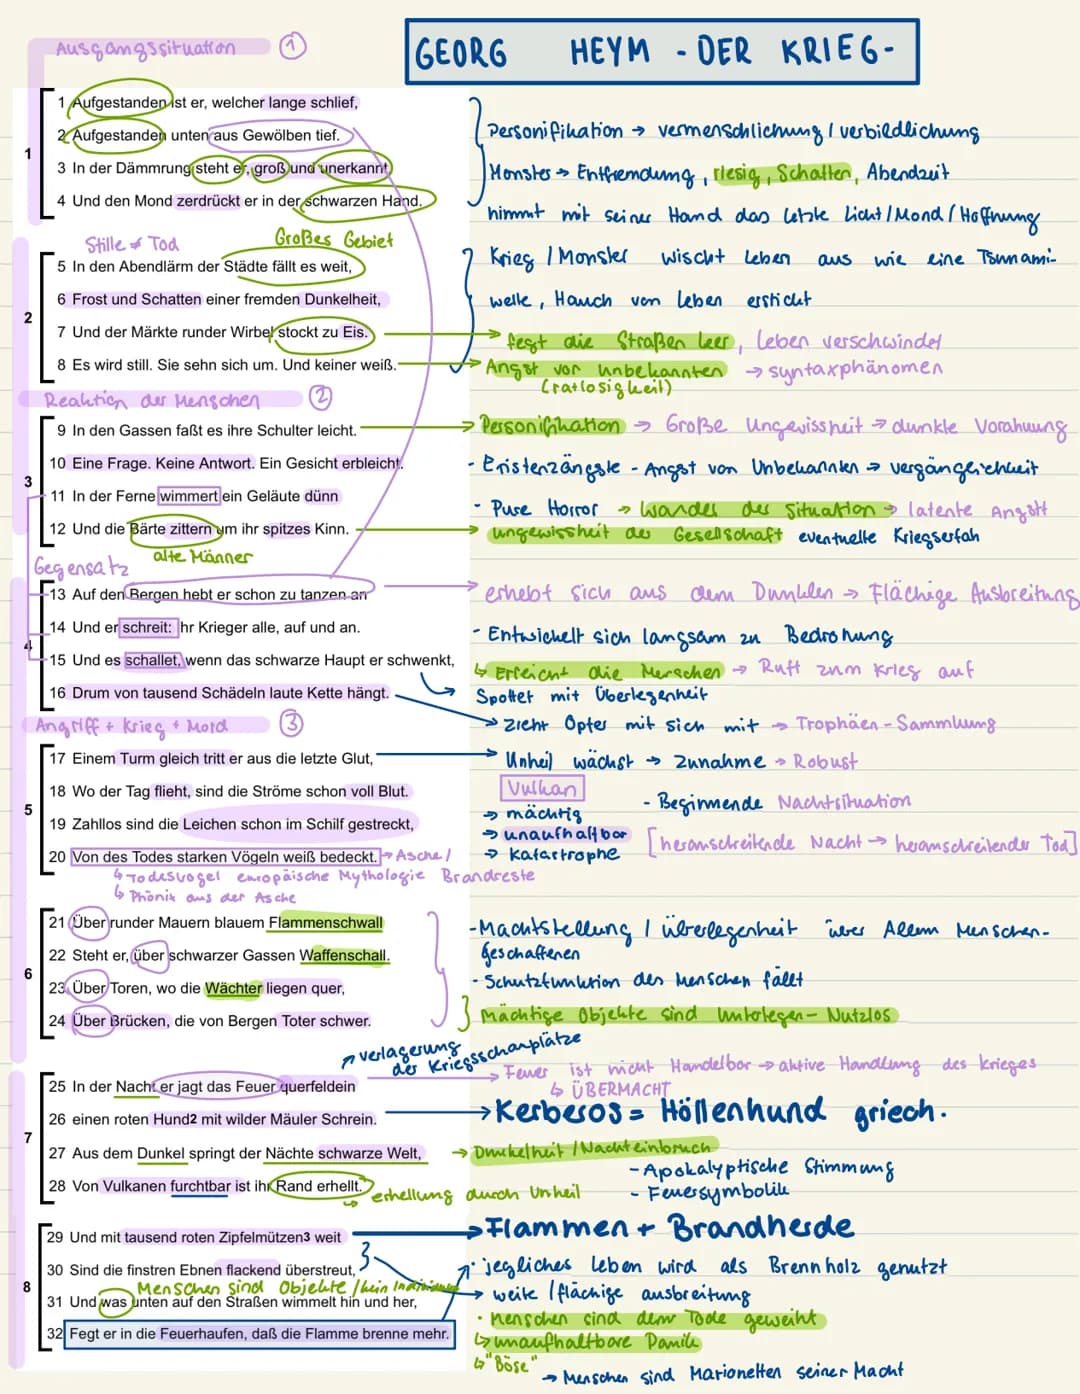 GEORG HEYM - DER KRIEG-
Ausgangssituation 1
1
1 Aufgestanden ist er, welcher lange schlief,
2 Aufgestanden unten aus Gewölben tief.
3 In der Dämmrung steht er, groß und unerkannt,
4 Und den Mond zerdrückt er in der schwarzen Hand.
Personifikation → vermenschlichung / verbildlichung
Monster → Entfremdung, riesig, Schatten, Abendzeit
nimmt mit seiner Hand das letzte Licht/Mond/Hoffnung
Stille ≠ Tod
Großes Gebiet
2
5 In den Abendlärm der Städte fällt es weit,
6 Frost und Schatten einer fremden Dunkelheit,
7 Und der Märkte runder Wirbel stockt zu Eis.
8 Es wird still. Sie sehn sich um. Und keiner weiß.
Krieg / Monster wischt leben aus wie eine Tsunami-
welle, Hauch von leben erstickt
→ fegt die Straßen leer, leben verschwindet
→ Angst vor unbekannten → syntaxphänomen
(ratlosigkeit)
Reaktion der Menschen 2
3
9 In den Gassen faßt es ihre Schulter leicht.
10 Eine Frage. Keine Antwort. Ein Gesicht erbleicht.
11 In der Ferne wimmert ein Geläute dünn
12 Und die Bärte zittern um ihr spitzes Kinn.
alte Männer
→ Personifikation → Große Ungewissheit → dunkle Vorahnung
- Existenzängste - Angst von Unbekannten → vergänglichkeit
- Pure Horror → Wandel der Situation → latente Angst
→ ungewissheit der Gesellschaft eventuelle Kriegserfah
Gegensatz
4
13 Auf den Bergen hebt er schon zu tanzen an
14 Und er schreit: Ihr Krieger alle, auf und an.
15 Und es schallet, wenn das schwarze Haupt er schwenkt,
16 Drum von tausend Schädeln laute Kette hängt.
→ erhebt sich aus dem Dunklen → Flächige Ausbreitung
- Entwickelt sich langsam zu Bedrohung
↳ Erreicht die Menschen → Ruft zum Krieg auf
Spottet mit Überlegenheit
→ zieht Opfer mit sich mit → Trophäen-Sammlung
Angriff + Krieg + Mord 3
5
17 Einem Turm gleich tritt er aus die letzte Glut,
18 Wo der Tag flieht, sind die Ströme schon voll Blut.
19 Zahllos sind die Leichen schon im Schilf gestreckt,
20 Von des Todes starken Vögeln weiß bedeckt. → Asche/
Brandreste
↳ Todesvogel europäische Mythologie
↳ Phönix aus der Asche
→ Unheil wächst → Zunahme → Robust
Vulkan
→ mächtig
→ unaufhaltbar
→ Katastrophe
- Beginnende Nachtsituation
[heranschreitende Nacht → heranschreitender Tod]
6
21 Über runder Mauern blauem Flammenschwall
22 Steht er, über schwarzer Gassen Waffenschall.
23 Über Toren, wo die Wächter liegen quer,
24 Über Brücken, die von Bergen Toter schwer.
- Machtstellung / überlegenheit über Allem Menschen-
geschaffenen
- Schutzfunktion des Menschen fällt
mächtige Objekte sind Unterlegen - Nutzlos
verlagerung
der Kriegsschauplätze
7
25 In der Nacht er jagt das Feuer querfeldein
26 einen roten Hund2 mit wilder Mäuler Schrein.
27 Aus dem Dunkel springt der Nächte schwarze Welt,
28 Von Vulkanen furchtbar ist ihr Rand erhellt.
→ erhellung durch Unheil
→ Feuer ist nicht Handelbar → aktive Handlung des krieges
↳ ÜBERMACHT
→ Kerberos = Höllenhund griech.
→ Dunkelheit / Nachteinbruch
- Apokalyptische Stimmung
- Feuersymbolik
8
29 Und mit tausend roten Zipfelmützen3 weit
30 Sind die finstren Ebnen flackend überstreut,
Menschen sind Objekte / kein Individuum
31 Und was unten auf den Straßen wimmelt hin und her,
32 Fegt er in die Feuerhaufen, daß die Flamme brenne mehr.
→ Flammen + Brandherde
· jegliches leben wird als Brennholz genutzt
→ weite / flächige ausbreitung
· Menschen sind dem Tode geweiht
↳ unaufhaltbare Panik
↳ "Böse"
→ Menschen sind Marionetten seiner Macht